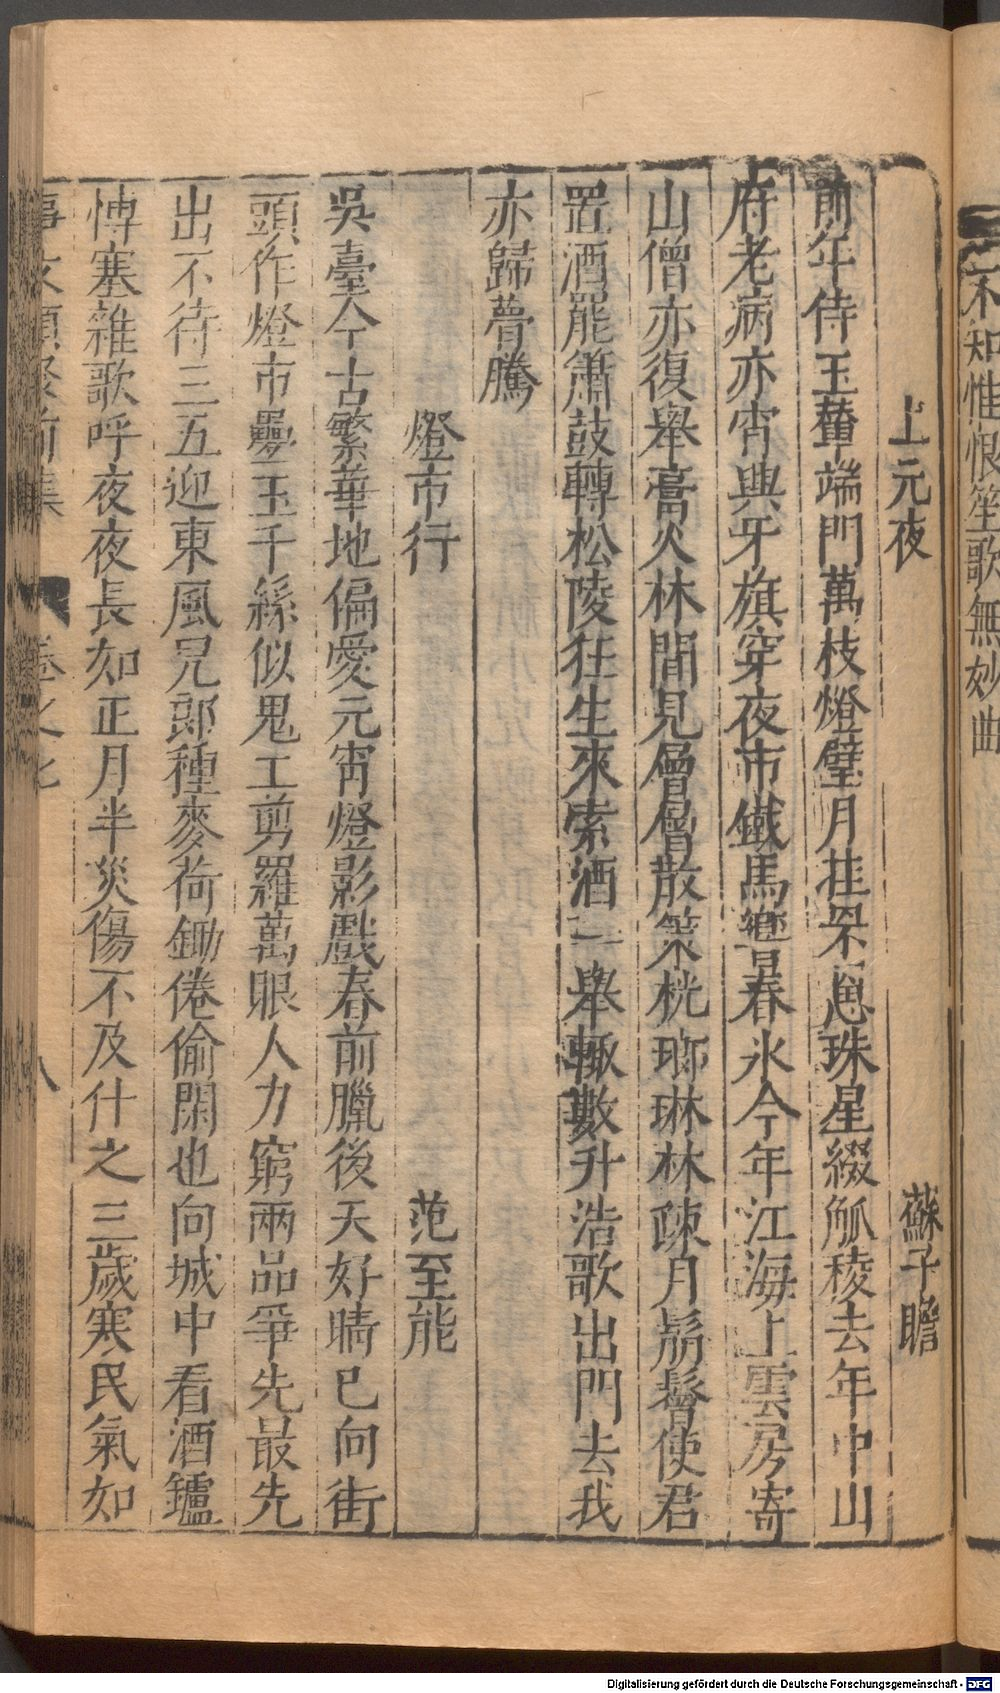 不知惟恨笙歌無妙曲
上元夜 蘇子瞻
前年侍玉輦端門萬枝燈璧月挂罘罳珠星綴觚稜去年中山
府老病亦宵興牙旗穿夜市鐵馬響春氷今年江海上雲房寄
山僧亦復舉膏火林間見層層散策桄瑯琳林疎月鬅鬙使君
置酒罷簫鼓轉松陵狂生來索酒一舉輒數升浩歌出門去我
亦歸瞢騰
燈市行 范至能
吳臺今古繁華地偏愛元宵燈影戲春前臘後天好晴已向街
頭作燈市疊玉千絲似鬼工剪羅萬眼人力窮兩品爭先最先
出不待三五迎東風兒郎種麥荷鋤倦偷閑也向城中看酒鑪
愽塞雜歌呼夜夜長如正月半災傷不及什之三歲寒民氣如
事文類聚前集 卷之七 八
Digitalisierung gefördert durch die Deutsche Forschungsgemeinschaft - DFG